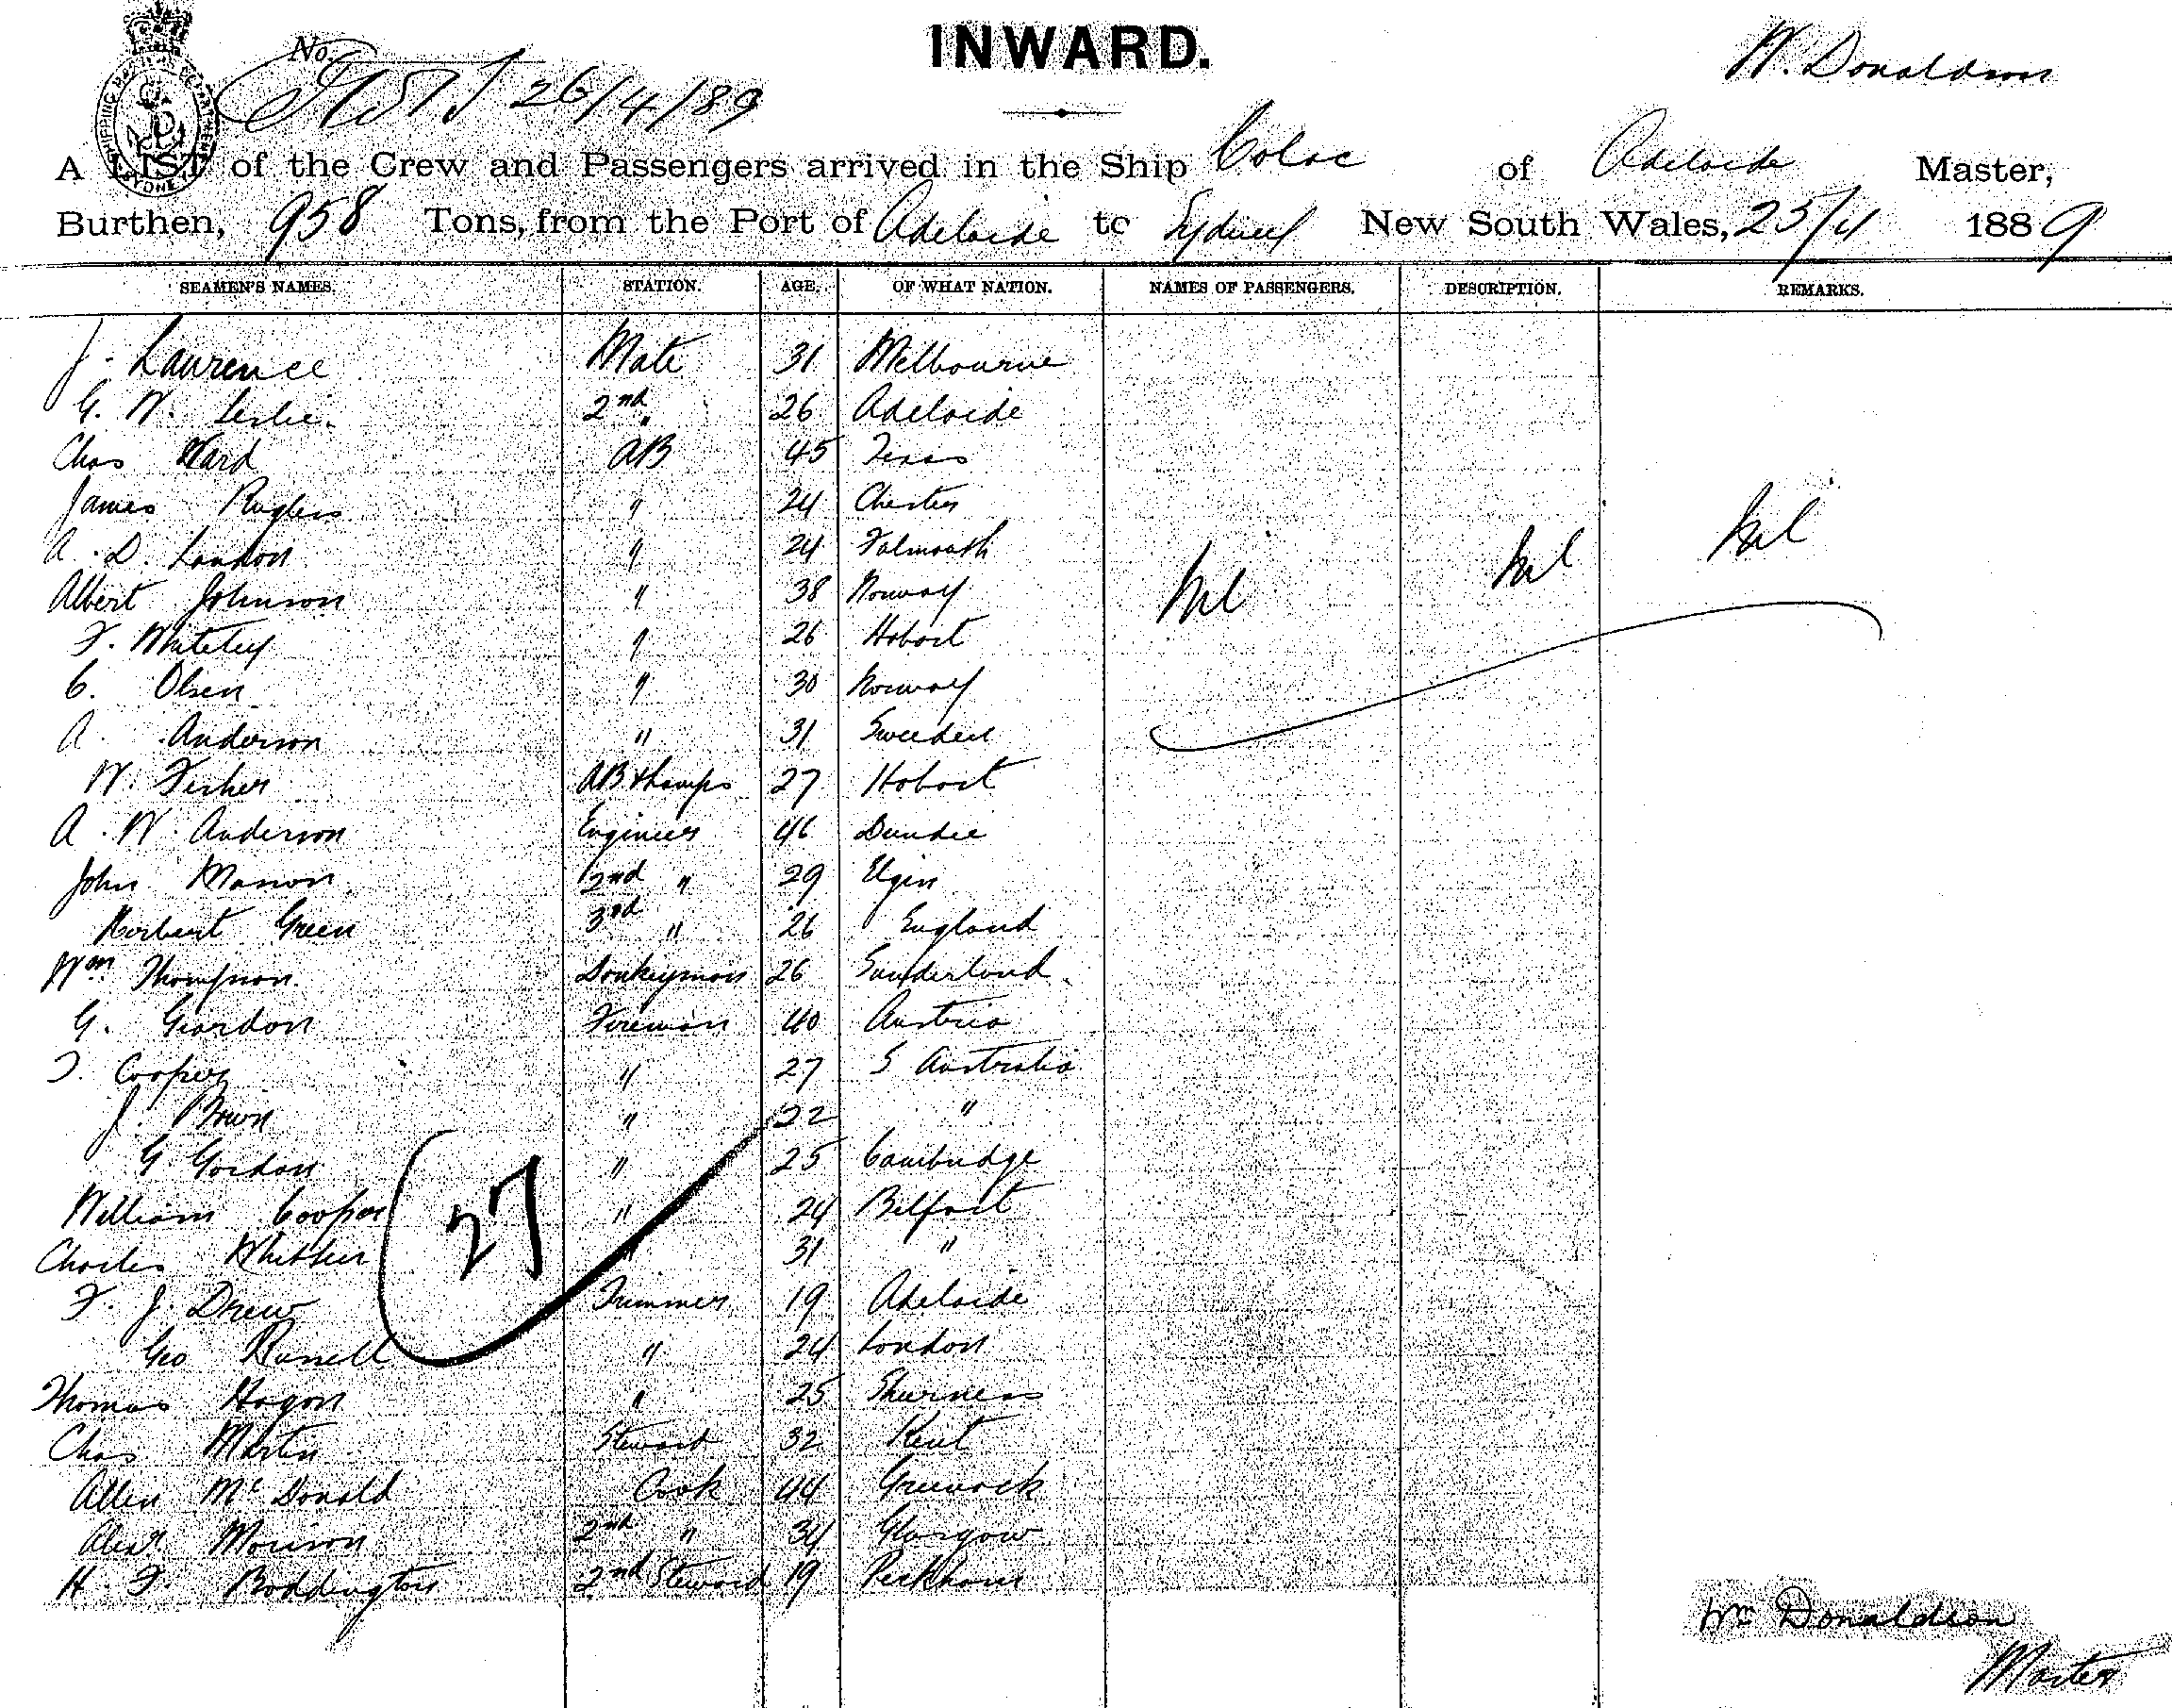 INWARD.
W. Donaldson
No.
26/4/89
SHIPPING MASTER'S DEPARTMENT SYDNEY
A LIST of the Crew and Passengers arrived in the Ship Colac of Adelaide Master,
Burthen, 958 Tons, from the Port of Adelaide to Sydney New South Wales, 25/4 1889
SEAMEN'S NAMES. STATION. AGE. OF WHAT NATION. NAMES OF PASSENGERS. DESCRIPTION. REMARKS.
J. Laurence Mate 31 Melbourne
G. W. Leslie. 2nd " 26 Adelaide
Chas Ward AB 45 Texas
James " 24 Chester
A. D. London " 24 Falmouth
Albert Johnson " 38 Norway
Nil Nil Nil
F. Whiteley " 26 Hobart
C. Olsen " 30 Norway
A. Anderson " 31 Sweeden
W. Fisher AB & Lamps 27 Hobart
A. W. Anderson Engineer 46 Dundee
John Manson 2nd " 29 Elgin
Herbert Green 3rd " 26 England
Wm Thompson. Donkeyman 26 Sunderland
G. Giordon Fireman 40 Austria
T. Cooper " 27 S Australia
J. Brown " 22 "
G. Gordon " 25 Cambridge
William Cooper " 24 Belfast
27
Charles " 31 "
F. J. Drew Trimmer 19 Adelaide
Geo Russell " 24 London
Thomas Hogan " 25 Sheerness
Chas Martin Steward 32 Kent
Allen McDonald Cook 44 Greenock
Alexr Morison 2nd " 34 Glasgow
H. F. Boddington 2nd Steward 19 Peckham
Wm Donaldson
Master